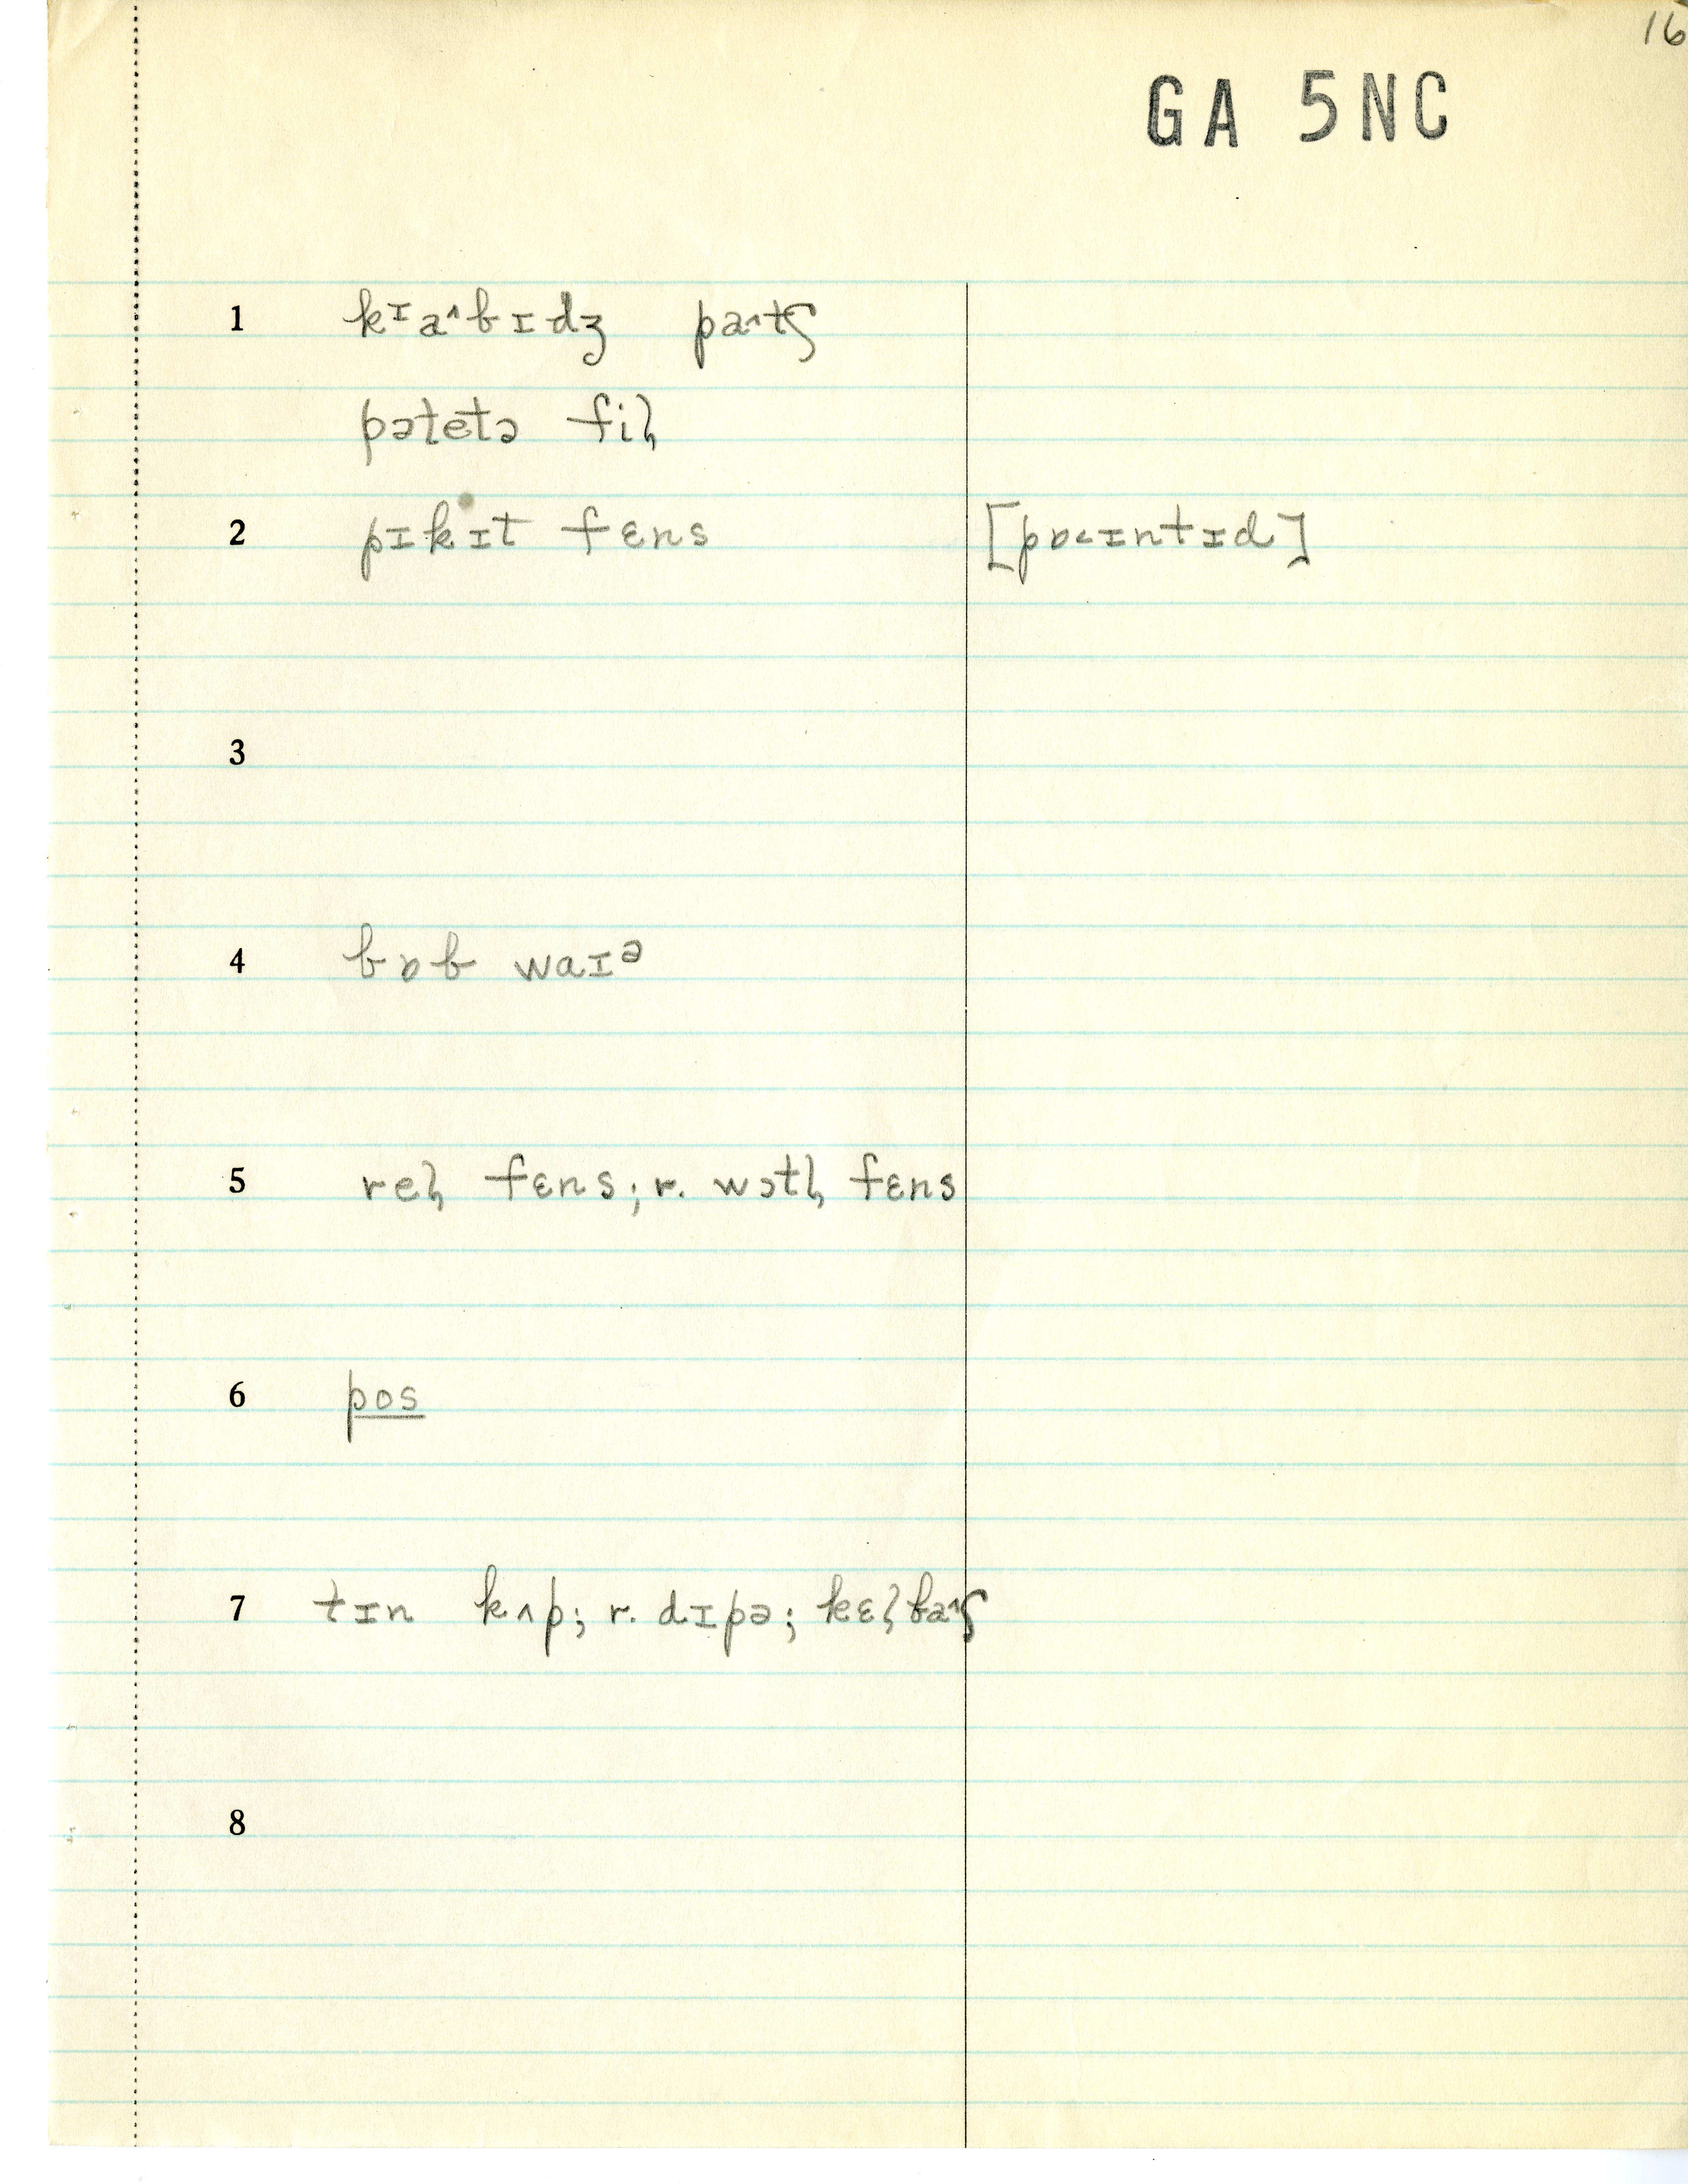 16
GA 5NC
1 kᶦa^bɪdʒ pa^tʃ
pətetə fil̡
2 pɪkɪt fɛns [pɒ<ɪntɪd]
3
4 bɒb waɪᵊ
5 rel̡ fɛns; r. wɔtl̡ fɛns
6 pos
7 tɪn kʌp; r. dɪpə; kɛl̡ba^ʃ
8